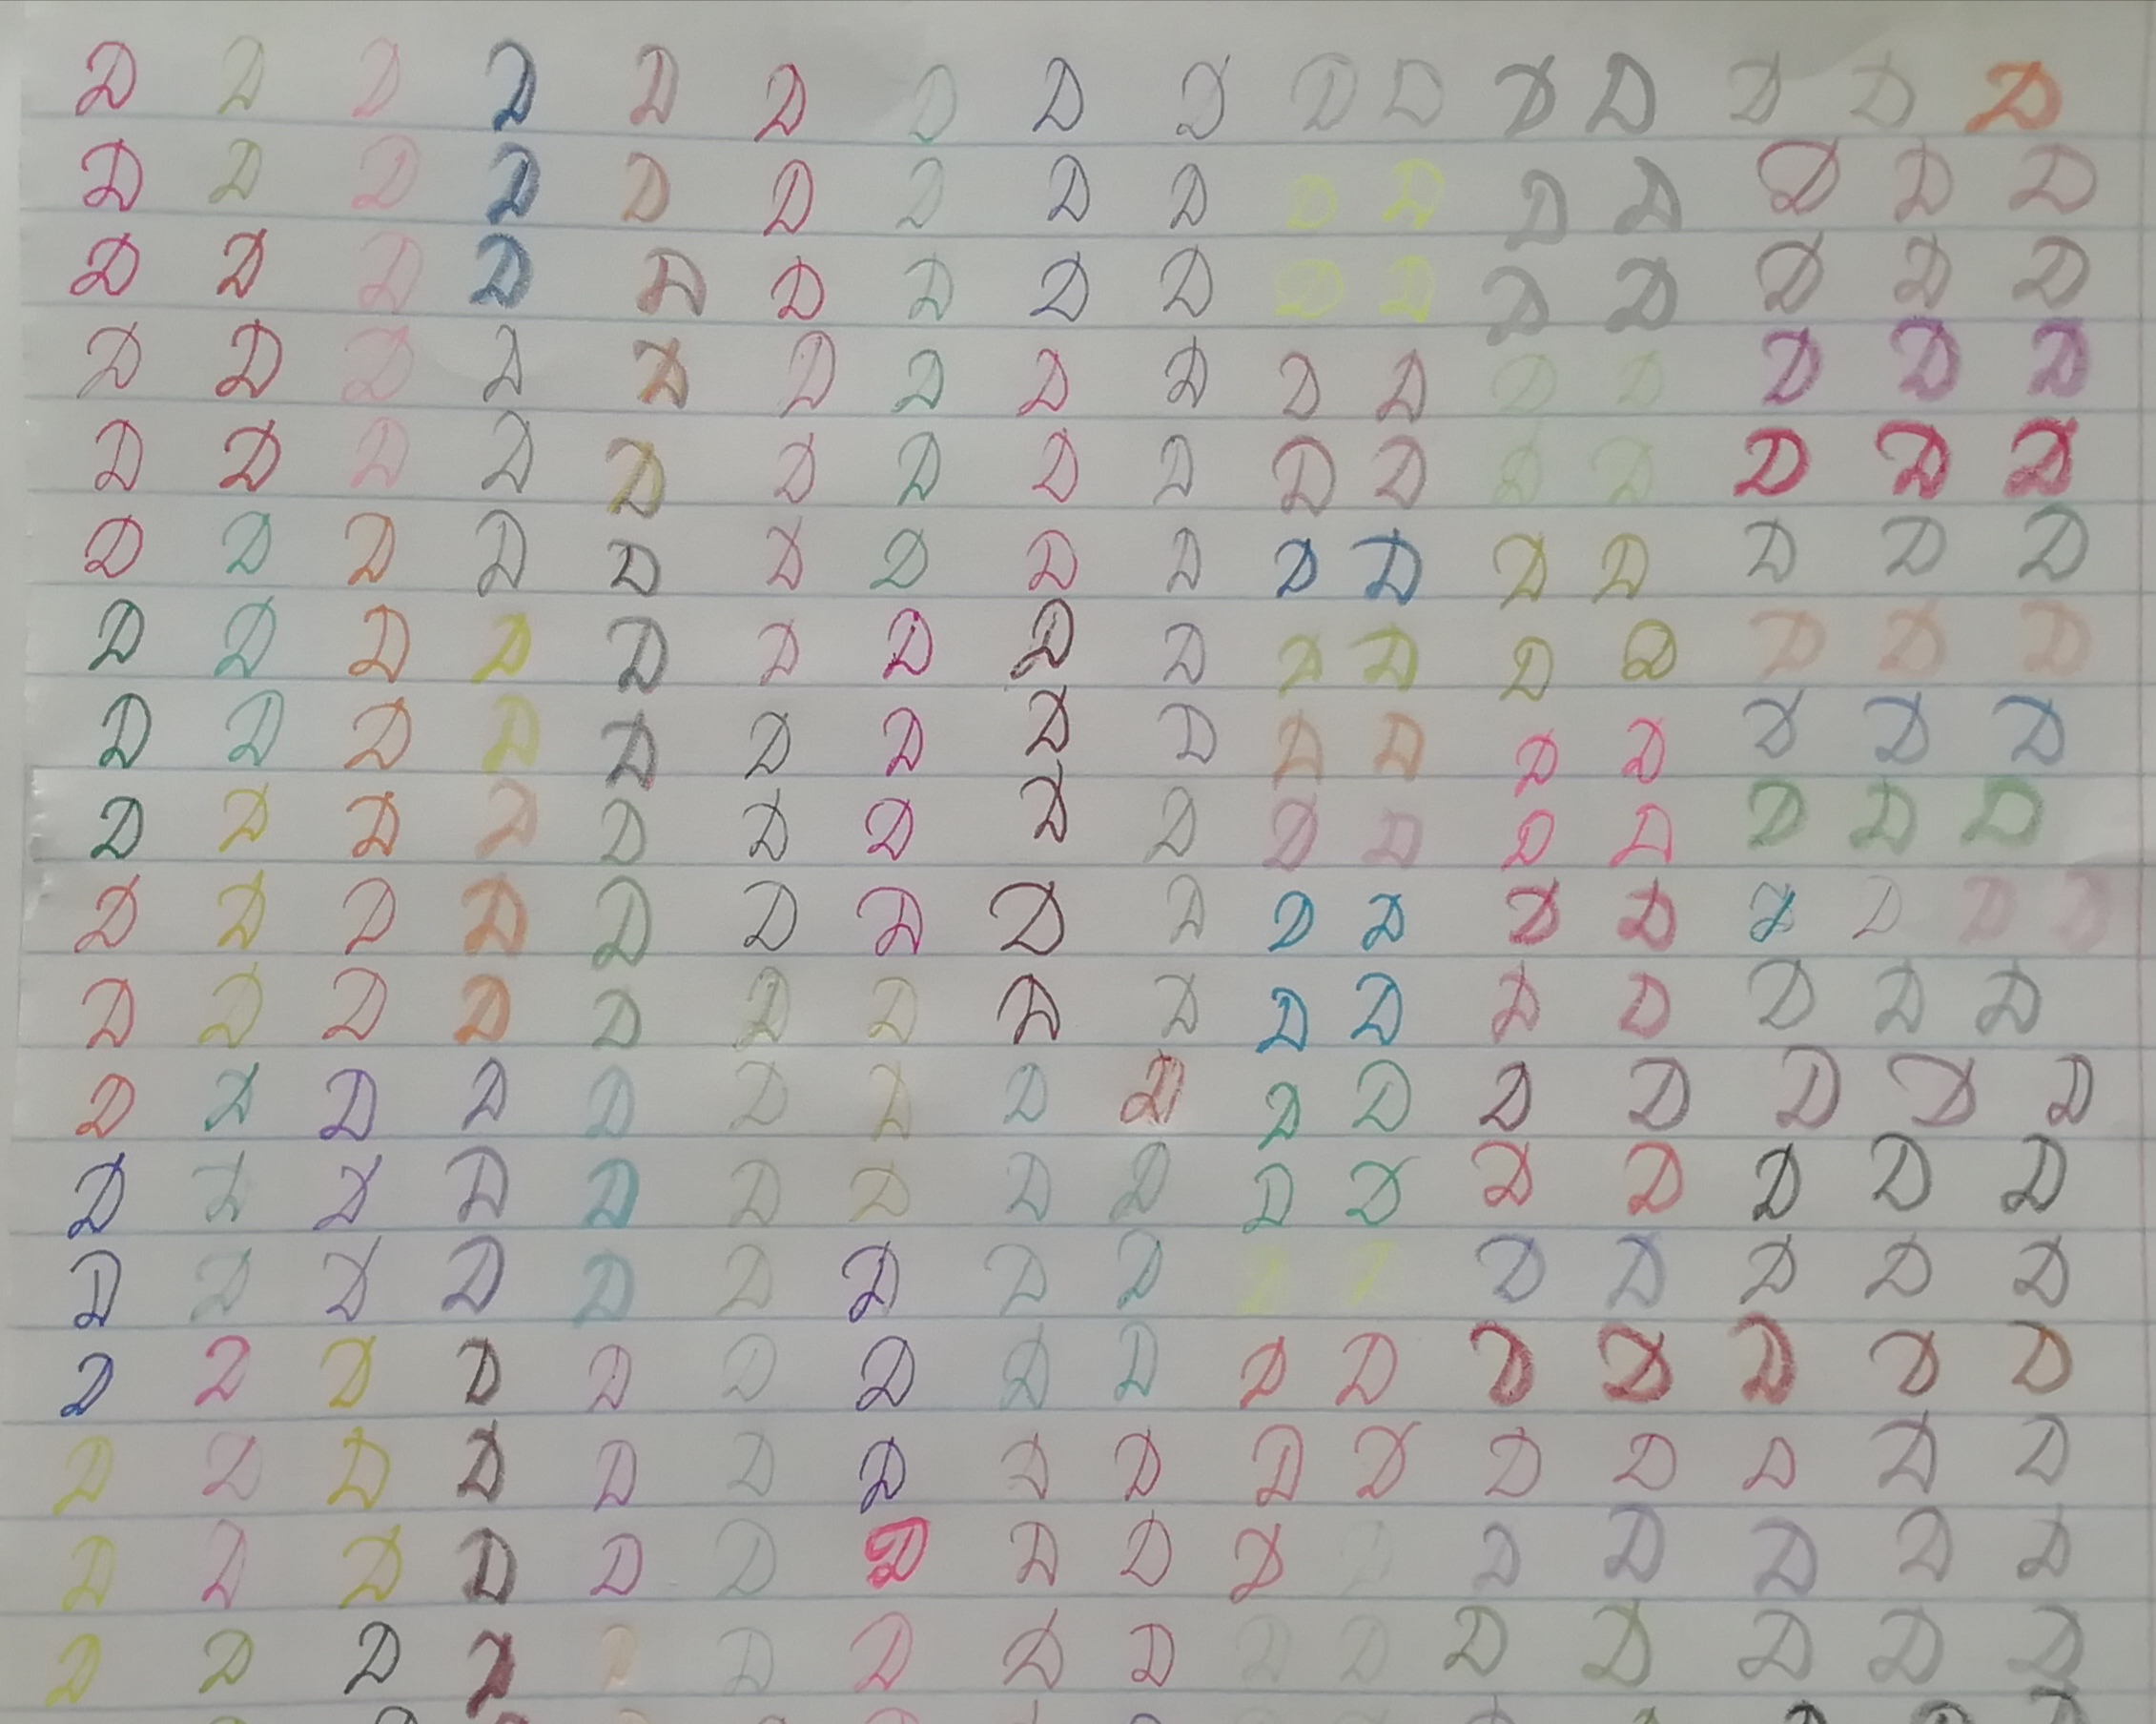 D D D D D D D D D D D D D D D D
D D D D D D D D D D D D D D D D
D D D D D D D D D D D D D D D D
D D D D D D D D D D D D D D D D
D D D D D D D D D D D D D D D D
D D D D D D D D D D D D D D D D
D D D D D D D D D D D D D D D D
D D D D D D D D D D D D D D D D
D D D D D D D D D D D D D D D D
D D D D D D D D D D D D D D D D D
D D D D D D D D D D D D D D D D
D D D D D D D D D D D D D D D D
D D D D D D D D D D D D D D D D
D D D D D D D D D D D D D D D D
D D D D D D D D D D D D D D D D
D D D D D D D D D D D D D D D D
D D D D D D D D D D D D D D D D
D D D D D D D D D D D D D D D D